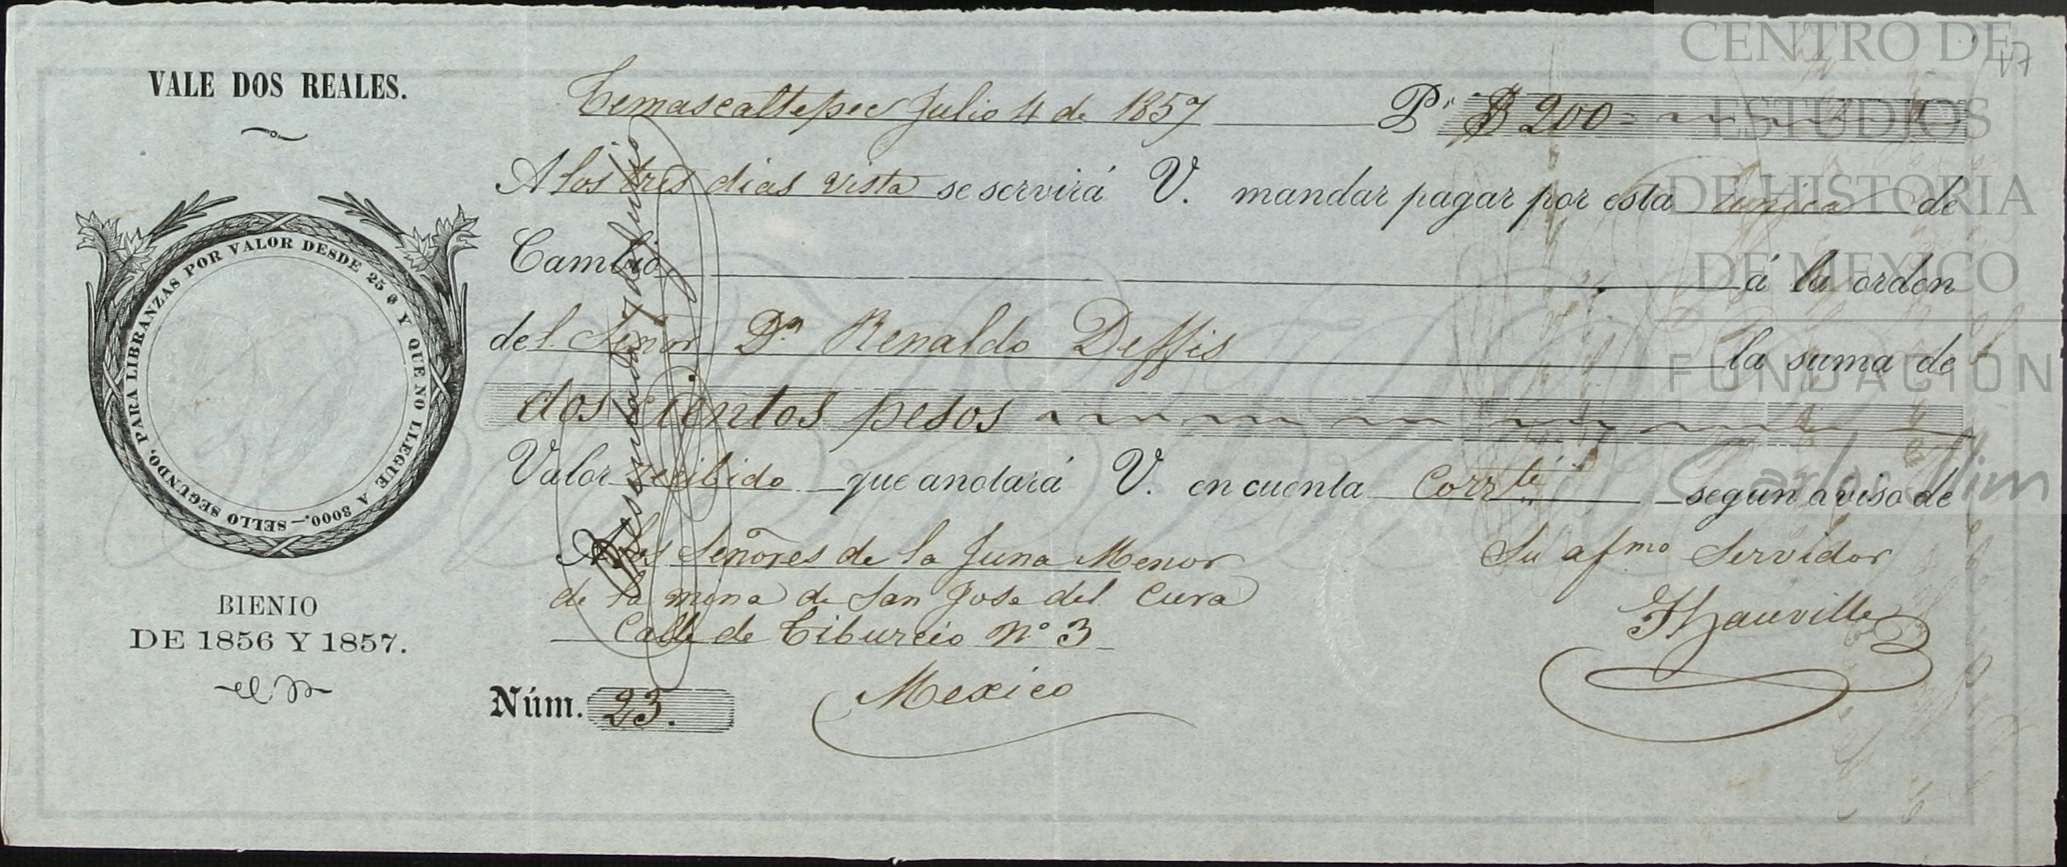 VALE DOS REALES.
PARA LIBRANZAS POR VALOR DESDE 25 $ Y QUE NO LLEGUE A 3000.—SELLO SEGUNDO.
BIENIO
DE 1856 Y 1857.
Temascaltepec Julio 4 de 1857 P.r $ 200=
A los tres dias vista se servirá V. mandar pagar por esta unica de
Cambio á la orden
del Señor Dn Renaldo Deffis la suma de
dos cientos pesos
Valor recibido que anotará V. en cuenta Corrte segun aviso de
A los Señores de la Juna Menor
de la mina de San Jose del Cura
Calle de Tiburcio No 3
Mexico
Su afmo Servidor
Núm. 23.
47
CENTRO DE
ESTUDIOS
DE HISTORIA
DE MEXICO
FUNDACION
Carlos Slim